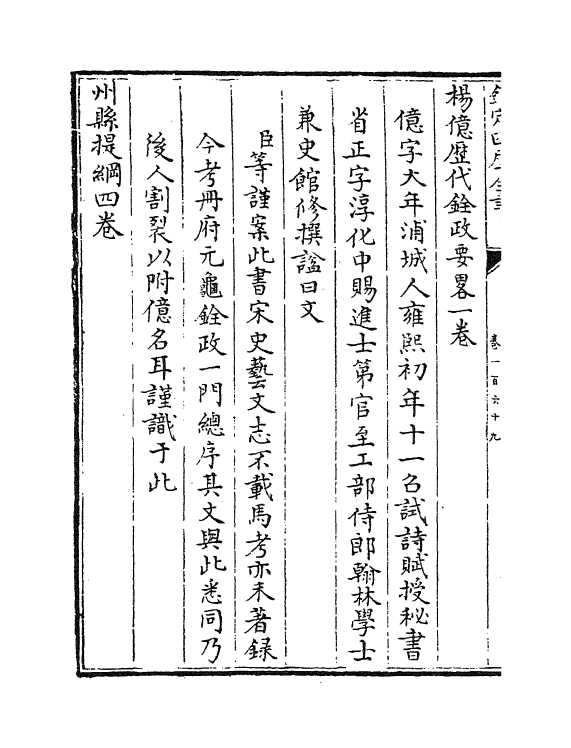 卷一百六十九
楊億歴代銓政要畧一卷
億字大年浦城人雍熙初年十一召試詩賦授秘書
省正字淳化中賜進士第官至工部侍郎翰林學士
兼史館修撰諡曰文
臣等謹案此書宋史藝文志不載馬考亦未著録
今考冊府元龜銓政一門總序其文與此悉同乃
後人割裂以附億名耳謹識于此
州縣提綱四卷